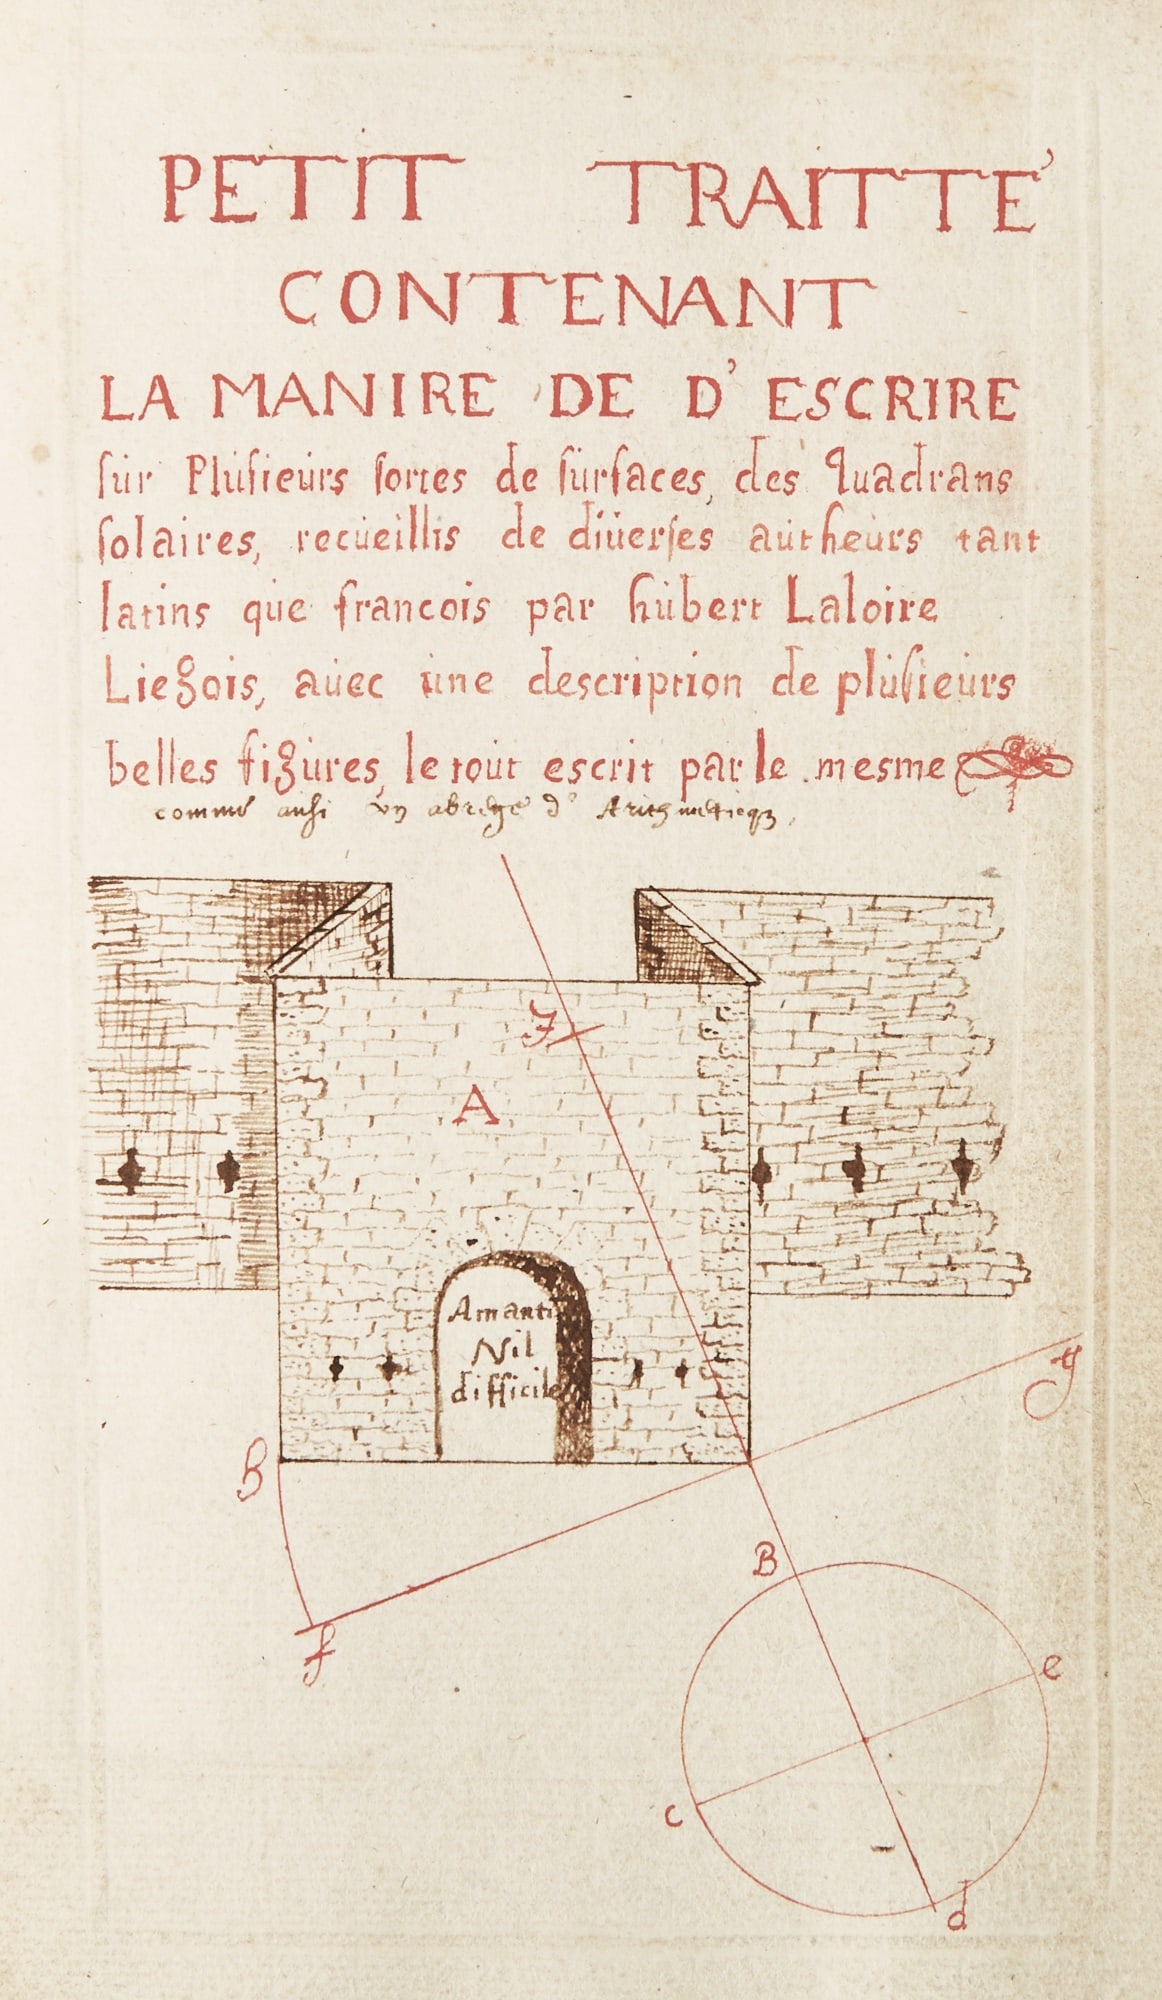 PETIT TRAITTÉ
CONTENANT
LA MANIRE DE D'ESCRIRE
sur Plusieurs sortes de surfaces, des Quadrans
solaires, recueillis de diuerses autheurs tant
latins que francois par hubert Laloire
Liegois, auec une description de plusieurs
belles figures, le tout escrit par le mesme
comme aussi vn abregé d'Arithmeticq3,
A
Amanti
Nil
difficile
g
B
B
f
e
c
d